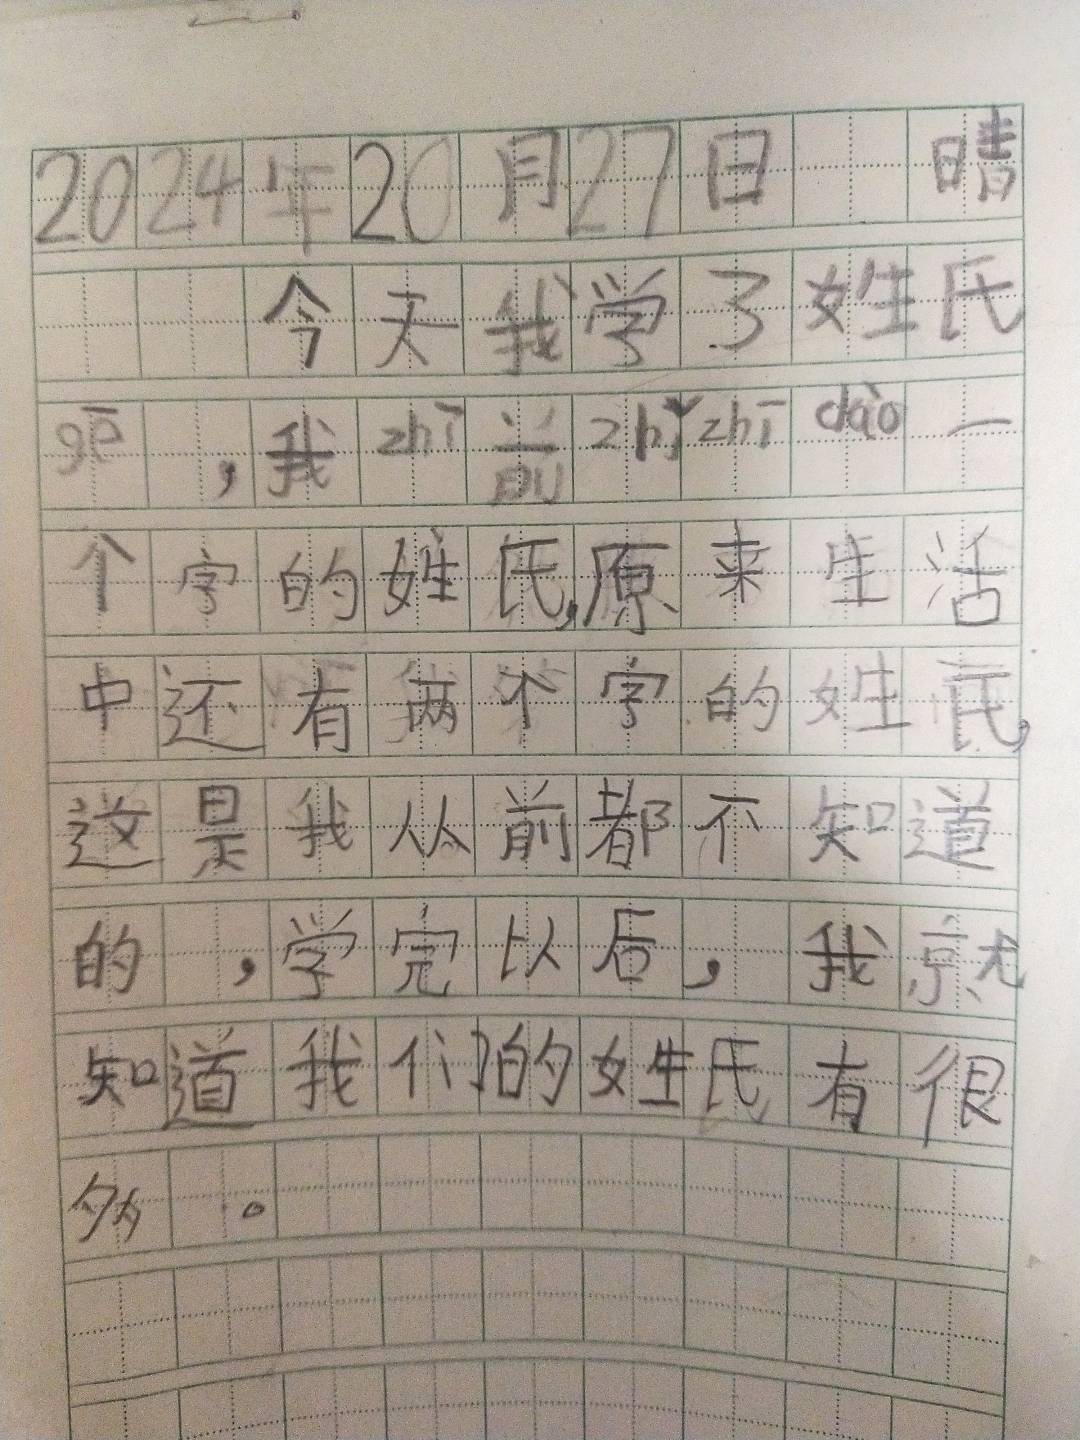 2024年20月27日 晴
今天我学了姓氏
gē,我zhī前zhǐzhī dào一
个字的姓氏,原来生活
中还有两个字的姓氏,
这是我从前都不知道
的,学完以后,我就
知道我们的姓氏有很
多。